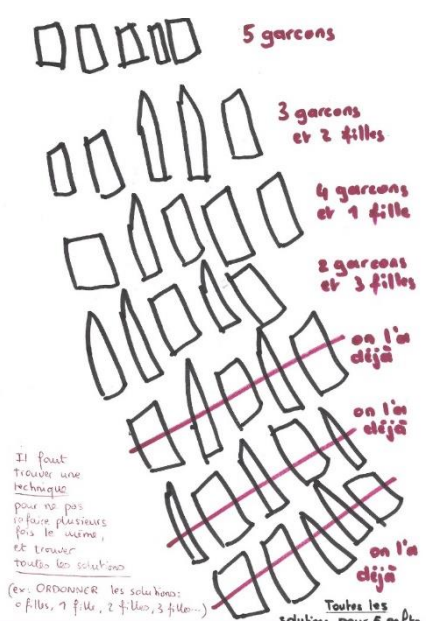 5 garçons
3 garcons
et 2 filles
4 garcons
et 1 fille
2 garcons
et 3 filles
on l'a
déjà
on l'a
déjà
on l'a
déjà
Il faut
trouver une
technique
pour ne pas
refaire plusieurs
fois le même,
et trouver
toutes les solutions
(ex: ORDONNER les solutions:
0 filles, 1 fille, 2 filles, 3 filles...)
Toutes les